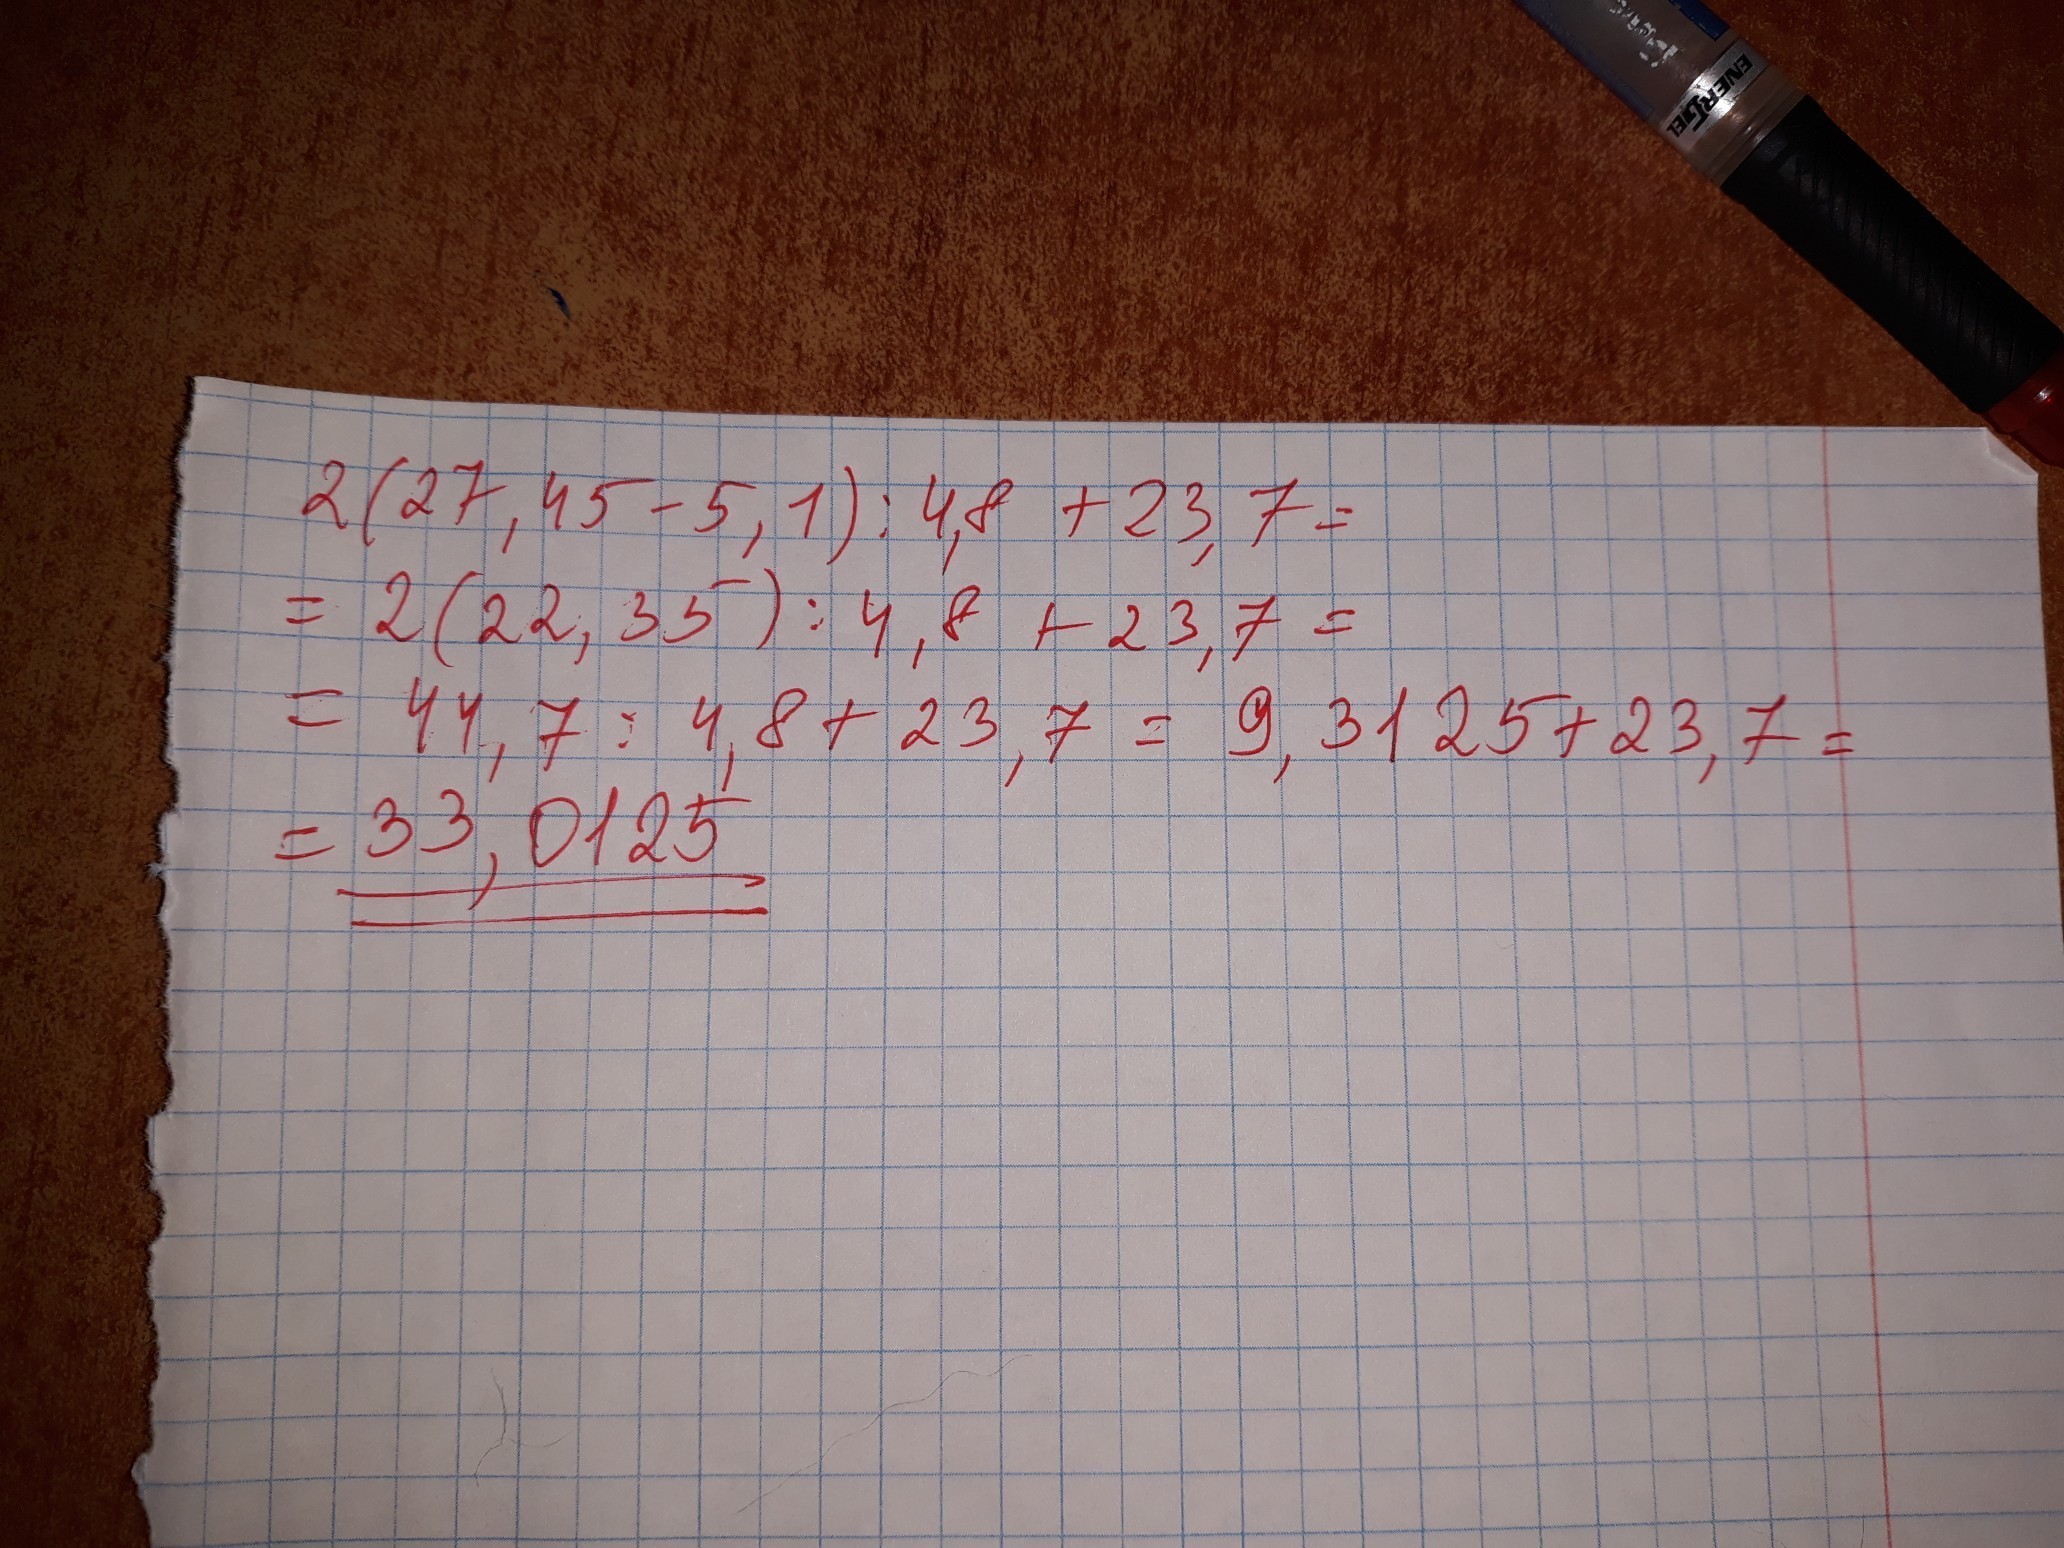 ENERGEL
2(27,45-5,1):4,8 +23,7=
= 2(22,35):4,8 +23,7=
= 44,7:4,8+23,7 = 9,3125+23,7=
= 33,0125